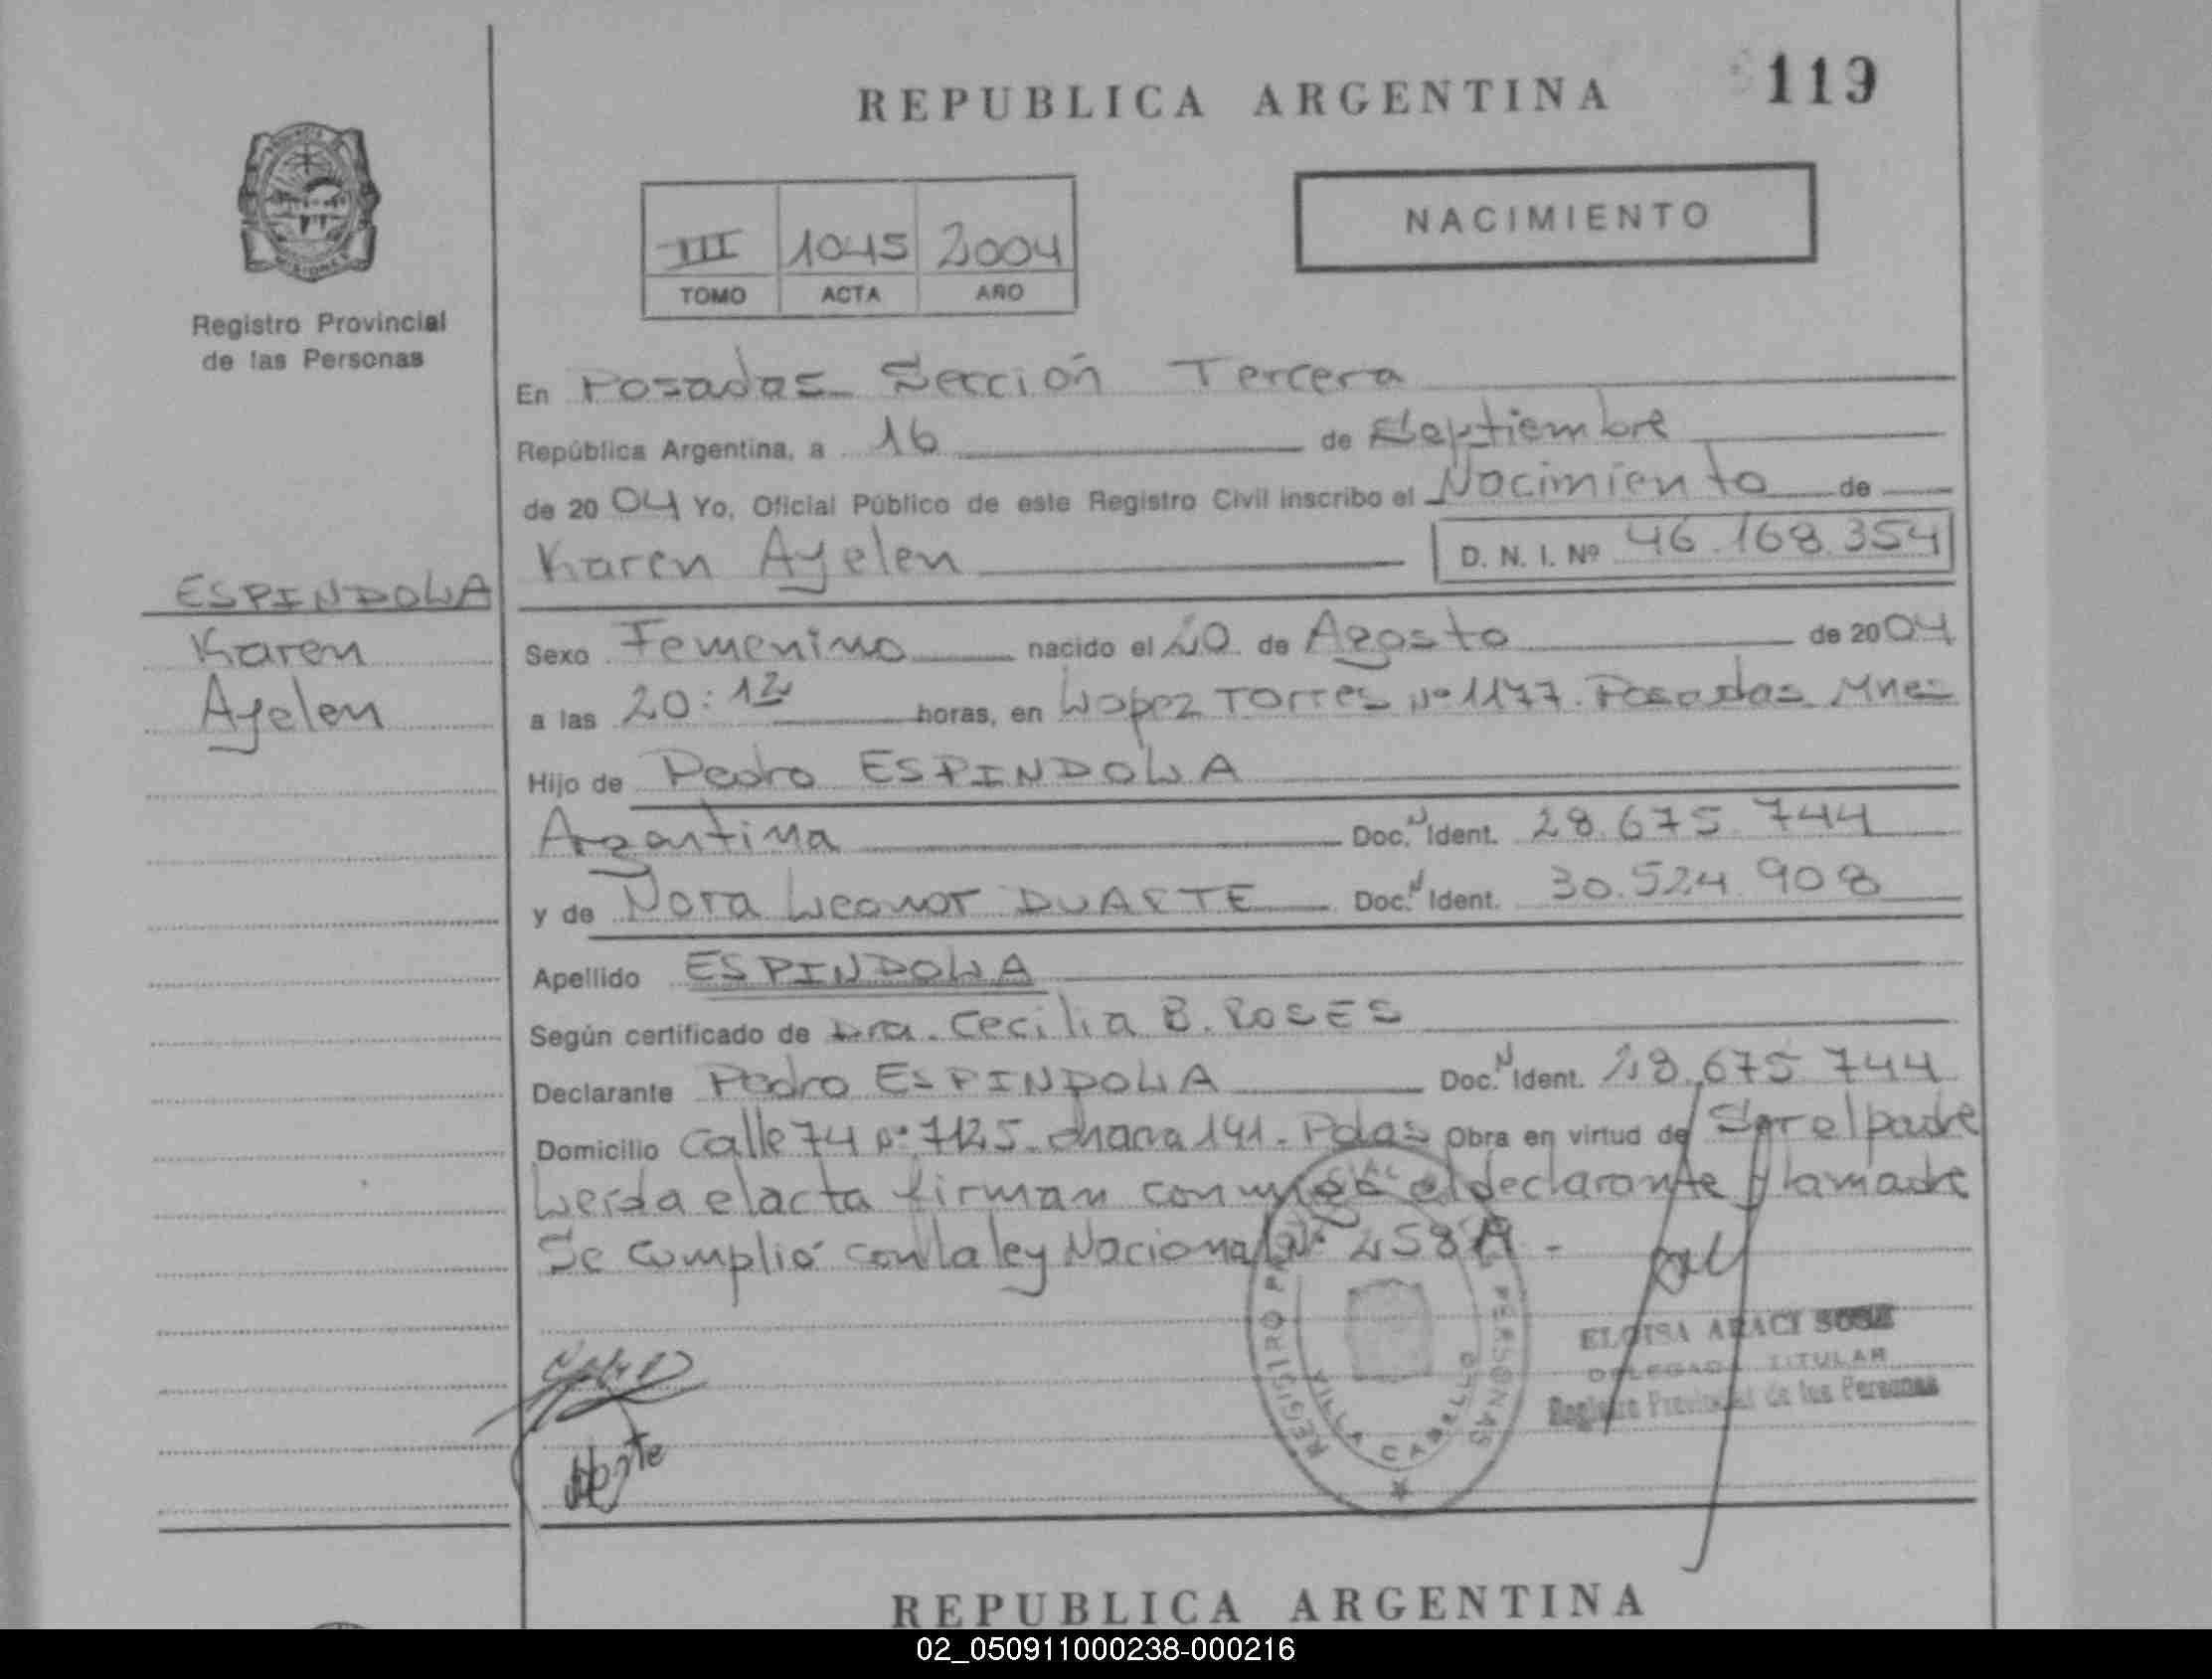 REPUBLICA ARGENTINA
119
III 1045 2004
TOMO ACTA AÑO
NACIMIENTO
Registro Provincial
de las Personas
En Posadas Sección Tercera
República Argentina, a 16 de Septiembre
de 2004 Yo, Oficial Público de este Registro Civil inscribo el Nacimiento de
Karen Ayelen D. N. I. Nº 46.168.354
ESPINDOLA
Karen
Ayelen
Sexo Femenino nacido el 20 de Agosto de 2004
a las 20:12 horas, en Lopez Torres Nº 1177. Posadas Mnes
Hijo de Pedro ESPINDOLA
Argentina Doc. N Ident. 28.675.744
y de Nora Leonor DUARTE Doc. N Ident. 30.524.908
Apellido ESPINDOLA
Según certificado de Dra. Cecilia B. ROSES
Declarante Pedro ESPINDOLA Doc. N Ident. 28.675.744
Domicilio Calle 74 Nº 7125 chacra 141. Pdas Obra en virtud de Ser el padre
Leida el acta firman conmigo el declarante y la madre
Se cumplió con la ley Nacional Nº
REGISTRO PERSONAS
VILLA CABELLO
ELOISA ARACI
DELEGADA TITULAR
Registro Provincial de las Personas
REPUBLICA ARGENTINA
02_050911000238-000216